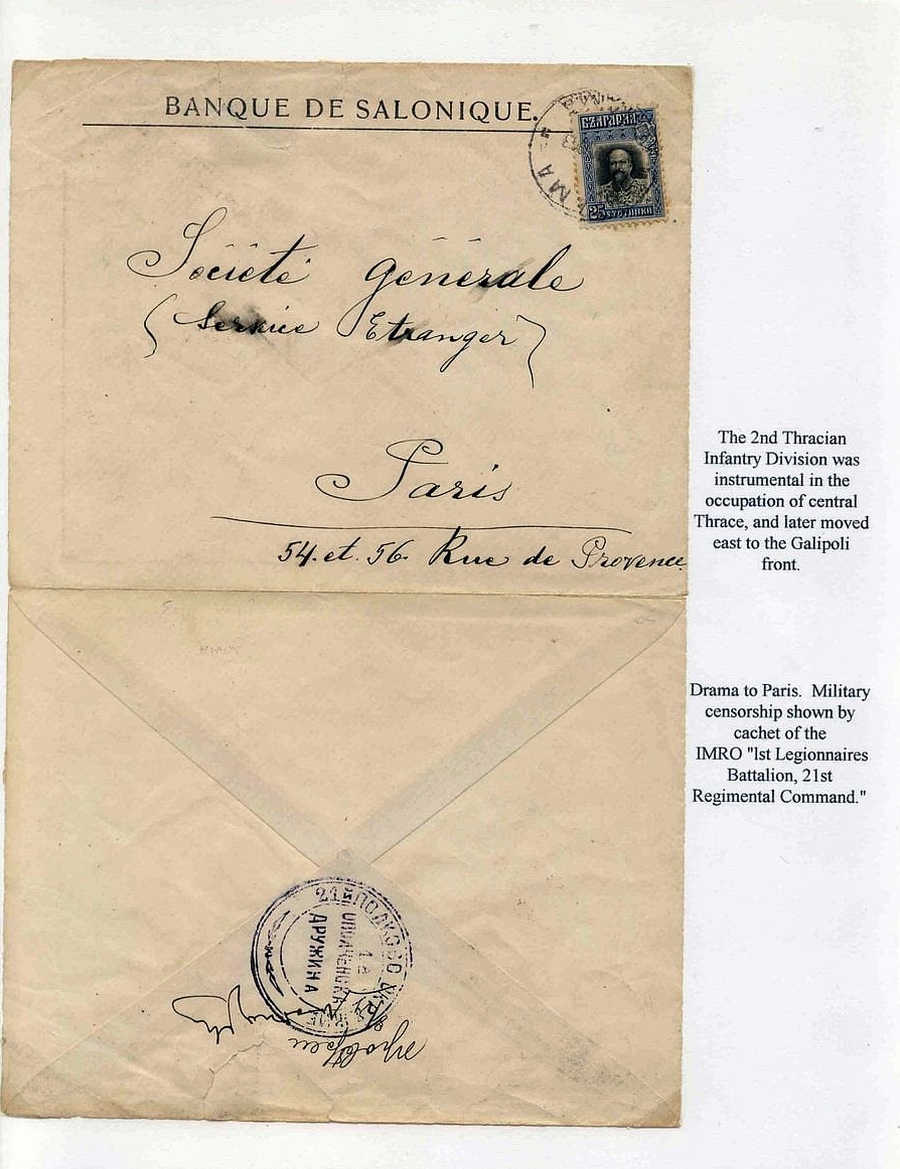 BANQUE DE SALONIQUE.
БЪЛГАРИЯ
25 СТОТИНКИ
Société générale
(Service Etranger)
Paris
54 et 56 Rue de Provence
The 2nd Thracian
Infantry Division was
instrumental in the
occupation of central
Thrace, and later moved
east to the Galipoli
front.
Drama to Paris. Military
censorship shown by
cachet of the
IMRO "lst Legionnaires
Battalion, 21st
Regimental Command."
21й ПОЛКОВО
1а
ОПЪЛЧЕНСКА
ДРУЖИНА